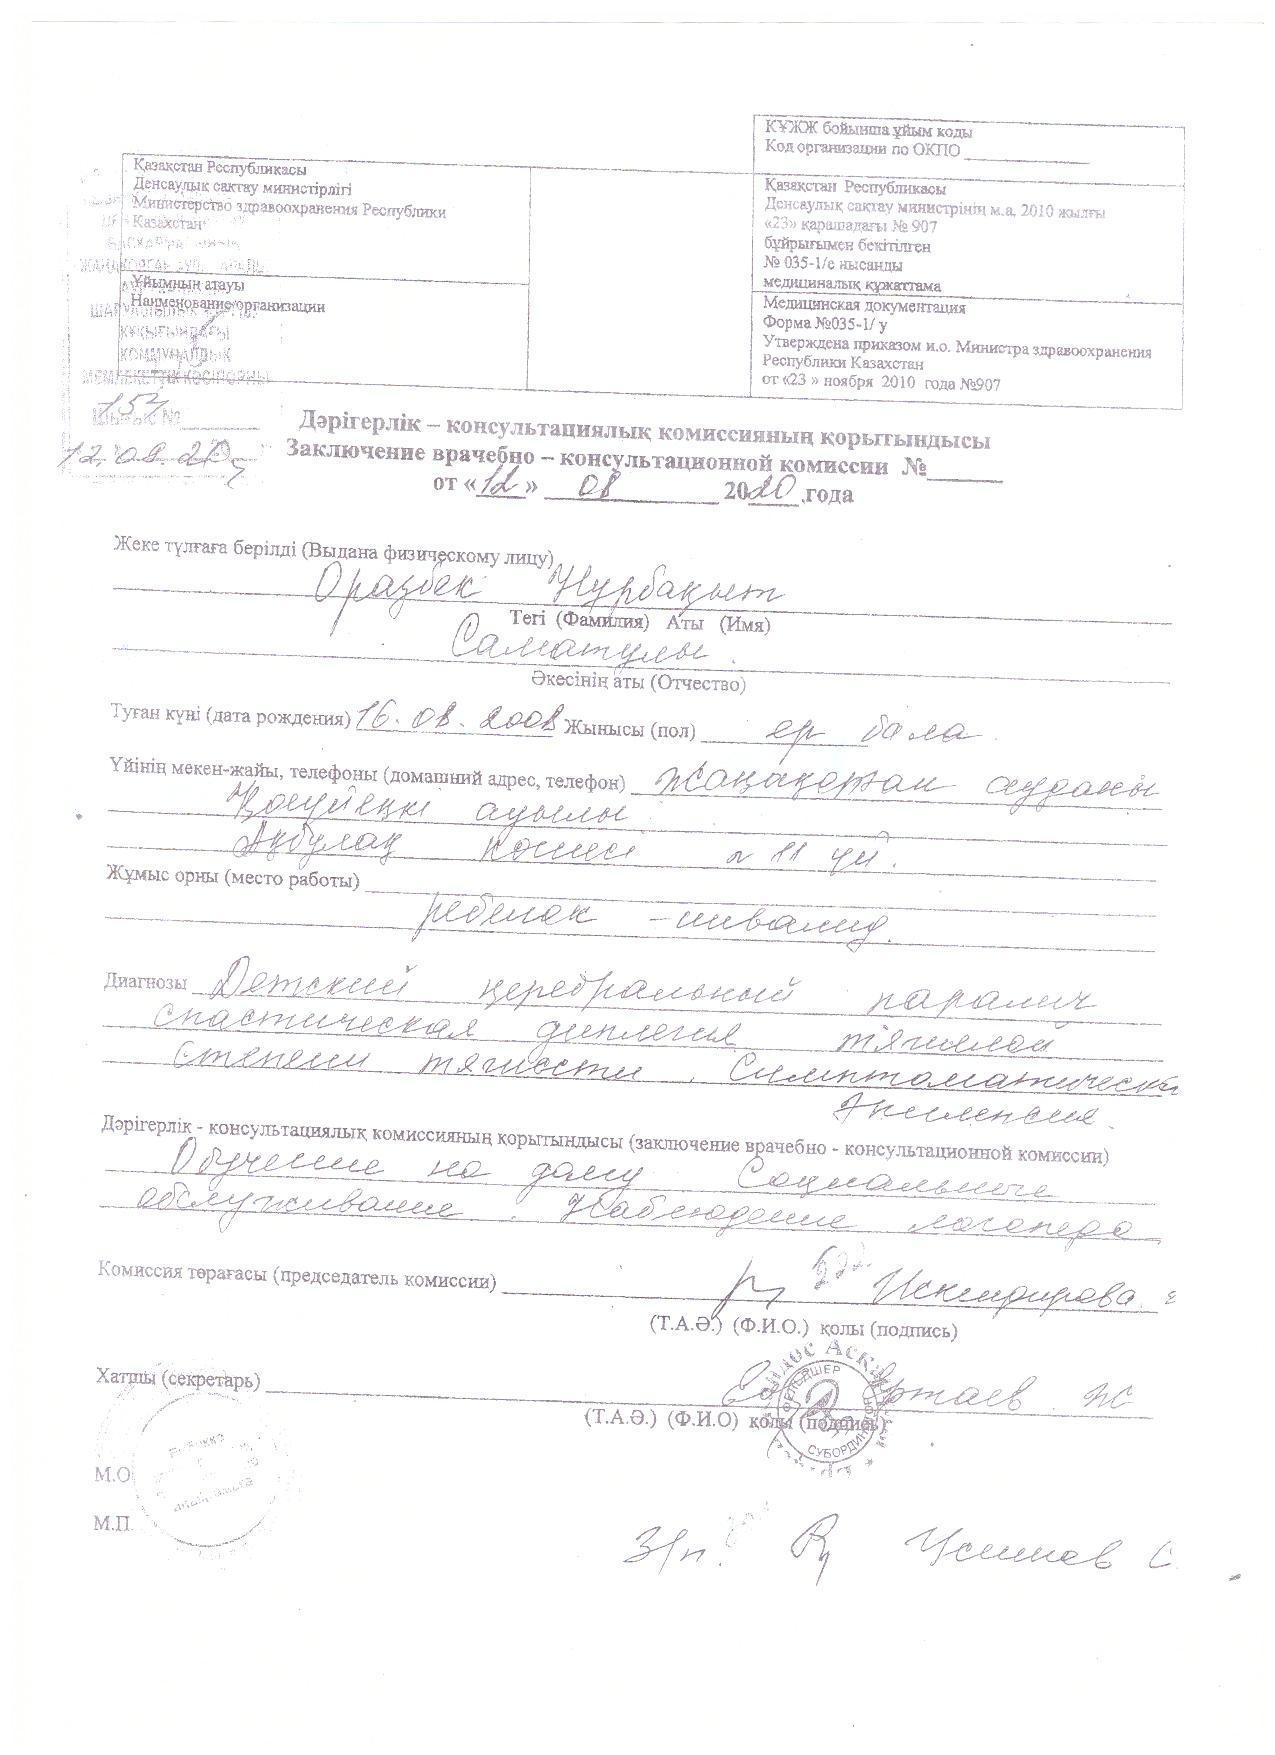 КҰЖЖ бойынша ұйым коды
Код организации по ОКПО
Қазақстан Республикасы
Денсаулық сақтау министірлігі
Министерство здравоохранения Республики
Казахстан
Қазақстан Республикасы
Денсаулық сақтау министрінің м.а. 2010 жылғы
«23» қарашадағы № 907
бұйрығымен бекітілген
№ 035-1/е нысанды
медициналық құжаттама
Ұйымның атауы
Наименование организации
Медицинская документация
Форма №035-1/ у
Утверждена приказом и.о. Министра здравоохранения
Республики Казахстан
от «23 » ноября 2010 года №907
ҚҰҚЫҒЫНДАҒЫ
КОММУНАЛДЫҚ
МЕМЛЕКЕТТІК КӘСІПОРНЫ
Шығыс №
12.08.20
Дәрігерлік – консультациялық комиссияның қорытындысы
Заключение врачебно – консультационной комиссии №
от «12» 08 2020 года
Жеке тұлғаға берілді (Выдана физическому лицу)
Оразбек Нұрбақыт
Тегі (Фамилия) Аты (Имя)
Саматұлы.
Әкесінің аты (Отчество)
Туған күні (дата рождения) 16.08.2008 Жынысы (пол) ер бала.
Үйінің мекен-жайы, телефоны (домашний адрес, телефон) Жаңақорған ауданы
ауылы
Ақбулақ көшесі 11 үй.
Жұмыс орны (место работы)
ребенок - инвалид.
Диагнозы Детский церебральный паралич
спастическая диплегия тяжелой
степени тяжести. Симптоматическая
эпилепсия.
Дәрігерлік - консультациялық комиссияның қорытындысы (заключение врачебно - консультационной комиссии)
Обучение на дому Социальное
обслуживание. Наблюдение логопеда
Комиссия төрағасы (председатель комиссии)
(Т.А.Ә.) (Ф.И.О.) қолы (подпись)
Хатшы (секретарь)
(Т.А.Ә.) (Ф.И.О) қолы (подпись)
ФЕЛЬДШЕР
М.О
М.П.